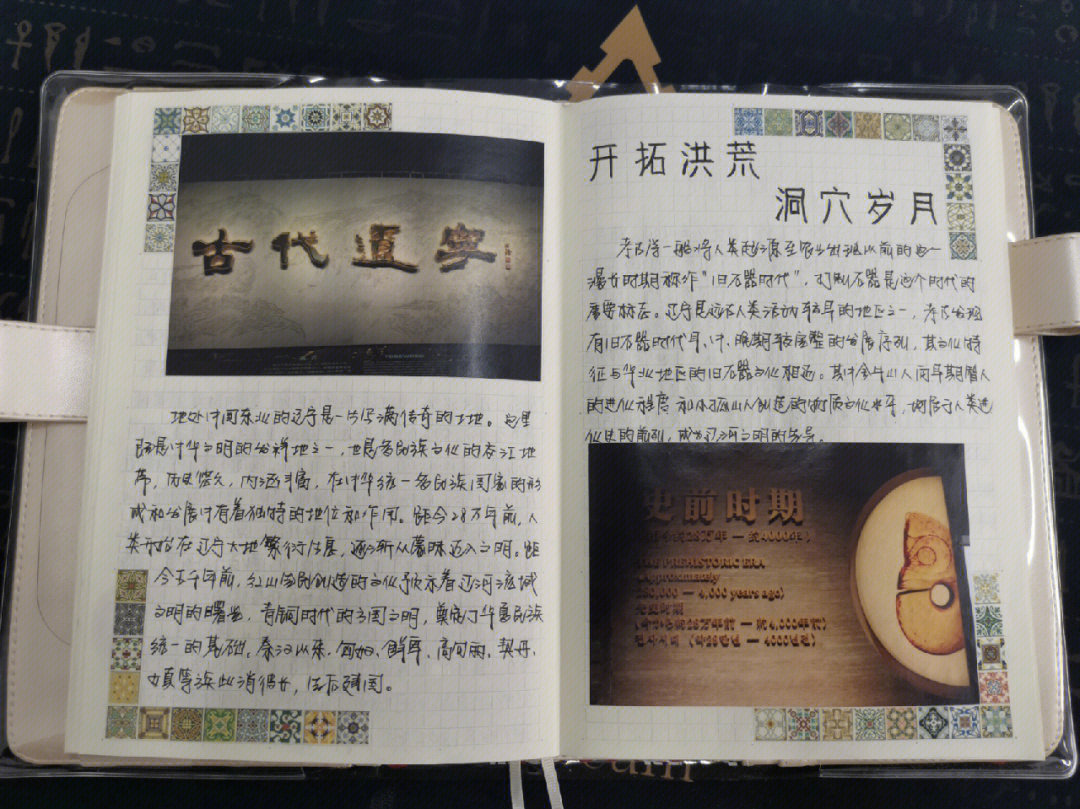 古代遼寧
FOREWORD
地处中国东北的辽宁是一片充满传奇的土地。这里
既是中华文明的发祥地之一，也是多民族文化的交汇地
带，历史悠久，内涵丰富，在中华统一多民族国家的形
成和发展中有着独特的地位和作用。距今28万年前，人
类开始在辽宁大地繁衍生息，逐渐从蒙昧迈入文明。距
今五千年前，红山古国创造的文化预示着辽河流域
文明的曙光，青铜时代的方国文明，奠定了华夏民族
统一的基础。秦汉以来，匈奴、鲜卑、高句丽、契丹、
女真等族此消彼长，先后建国。
开拓洪荒
洞穴岁月
考古学一般将人类起源至农业出现以前的这一
漫长时期称作“旧石器时代”，打制石器是这个时代的
重要标志。辽宁是远古人类活动较早的地区之一，考古发现
有旧石器时代早、中、晚期较完整的发展序列，其文化特
征与华北地区的旧石器文化相近。其中金牛山人同早期智人
的进化程度和小孤山人创造的物质文化水平，均居于人类进
化史的前列，成为辽河文明的先导。
史前时期
（距今约28万年 — 约4000年）
THE PREHISTORIC ERA
(Approximately
280,000 — 4,000 years ago)